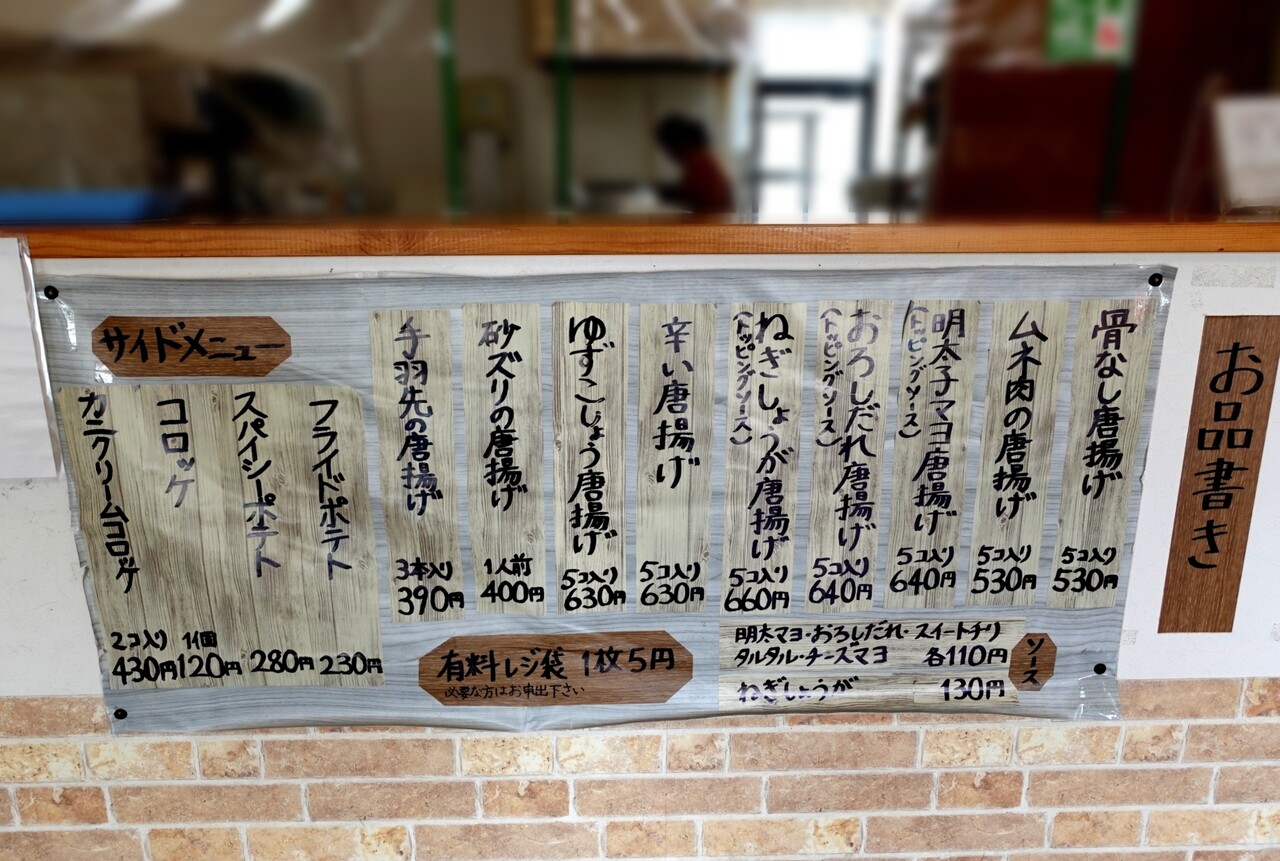 お品書き
骨なし唐揚げ
5コ入り
530円
ムネ肉の唐揚げ
5コ入り
530円
明太子マヨ唐揚げ
(トッピングソース)
5コ入り
640円
おろしだれ唐揚げ
(トッピングソース)
5コ入り
640円
ねぎしょうが唐揚げ
(トッピングソース)
5コ入り
660円
辛い唐揚げ
5コ入り
630円
ゆずこしょう唐揚げ
5コ入り
630円
砂ズリの唐揚げ
1人前
400円
手羽先の唐揚げ
3本入り
390円
サイドメニュー
フライドポテト
230円
スパイシーポテト
280円
コロッケ
1個
120円
カニクリームコロッケ
2コ入り
430円
ソース
明太マヨ・おろしだれ・スイートチリ
タルタル・チーズマヨ 各110円
ねぎしょうが 130円
有料レジ袋 1枚5円
必要な方はお申出下さい